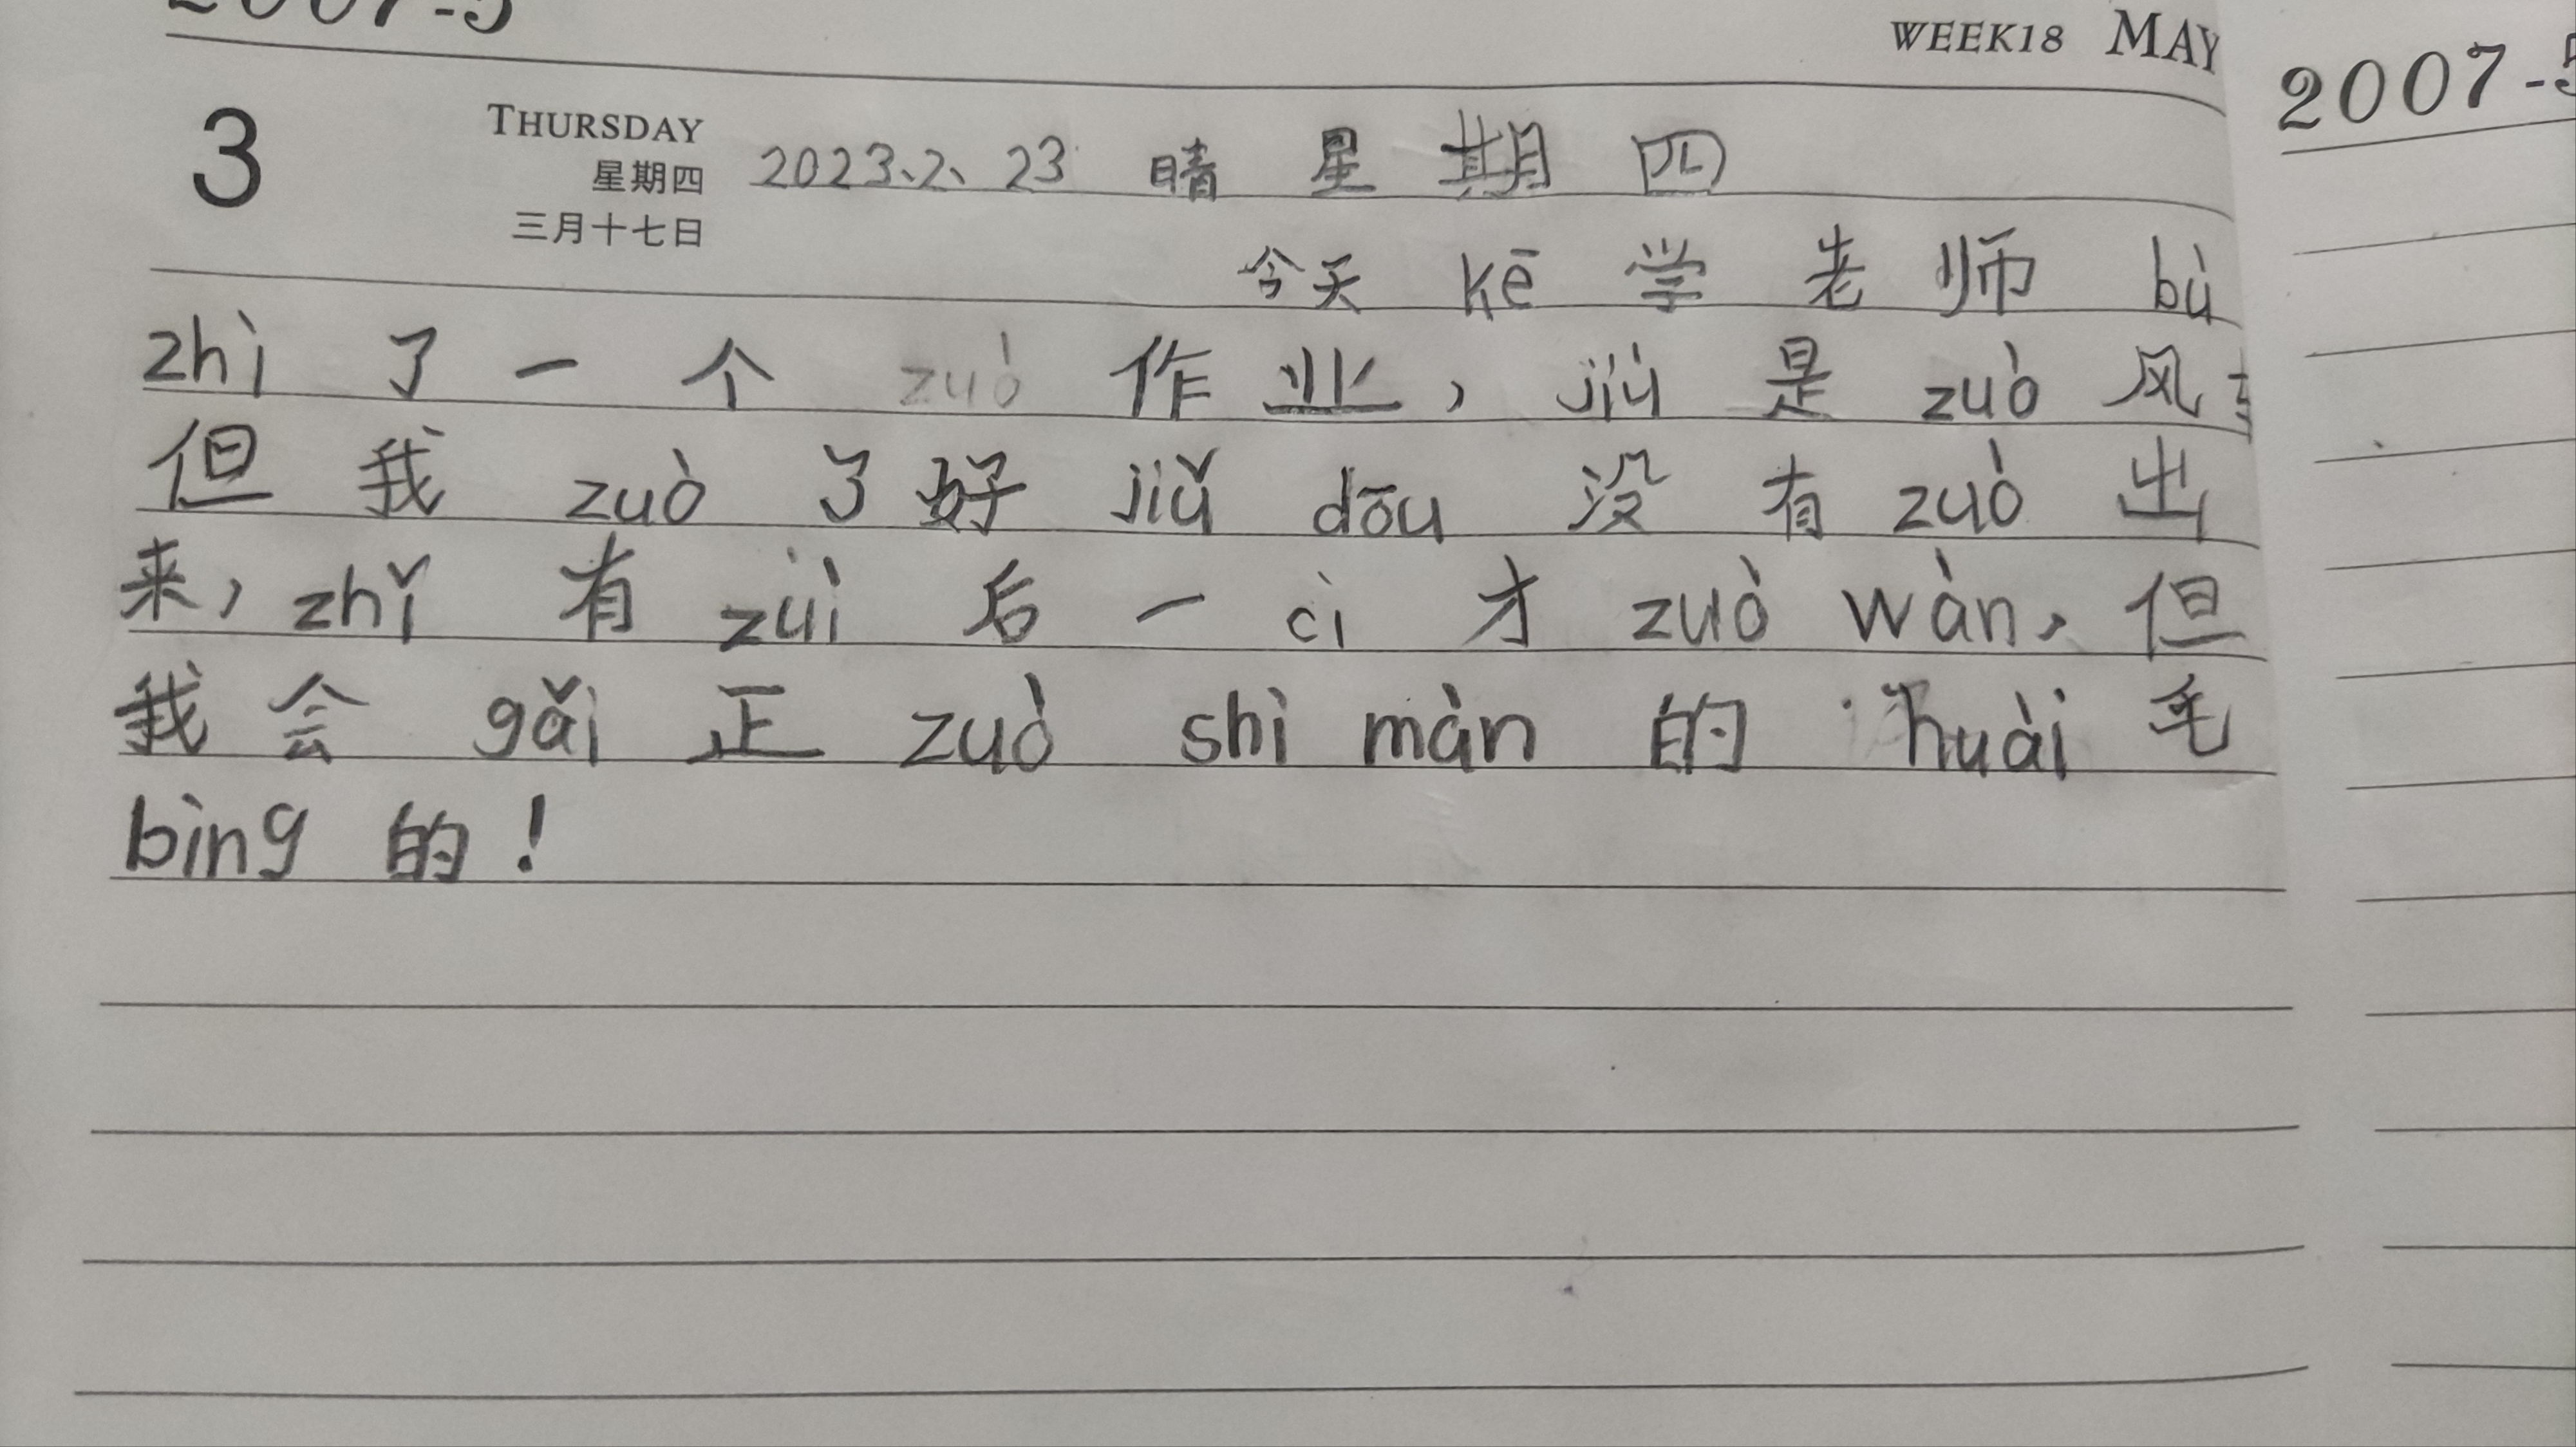 2007-5
WEEK18 MAY
2007-5
3
THURSDAY
星期四
三月十七日
2023、2、23 晴 星期四
今天 kē 学老师 bù
zhì 了一个 zuò 作业，jiù 是 zuò 风
但我 zuò 了好 jiǔ dōu 没有 zuò 出
来，zhǐ 有 zuì 后一 cì 才 zuò wàn，但
我会 gǎi 正 zuò shì màn 的 huài 毛
bìng 的！